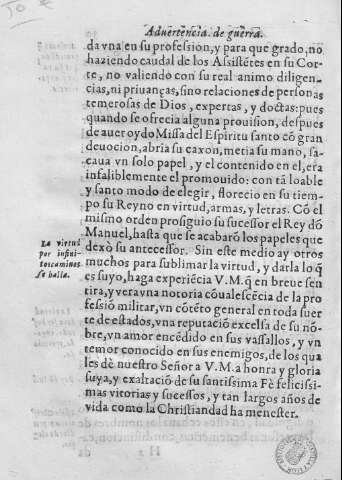 Aduertencia. de guerra.
da vna en su profession, y para que grado, no
haziendo caudal de los Asistẽtes en su Cor-
te, no valiendo con su real animo diligen-
cias, ni priuanças, sino relaciones de personas
temerosas de Dios, expertas, y doctas: pues
quando se ofrecia alguna prouision, despues
de auer oydo Missa del Espiritu santo cõ gran
deuocion, abria su caxon, metia su mano, sa-
caua vn solo papel, y el contenido en el, era
infaliblemente el promouido: con tã loable
y santo modo de elegir, florecio en su tiem-
po su Reyno en virtud, armas, y letras. Cõ el
mismo orden prosiguio su sucessor el Rey dõ
Manuel, hasta que se acabarõ los papeles que
dexò su antecessor. Sin este medio ay otros
muchos para sublimar la virtud, y darla lo q̃
es suyo, haga experiẽcia V.M. q̃ en breue sen
tira, y vera vna notoria cõualescẽcia de la pro
fessiõ militar, vn cõtẽto general en toda suer
te de estados, vna reputaciõ excelsa de su nõ-
bre, vn amor encẽdido en sus vassallos, y vn
temor conocido en sus enemigos, de los qua
les dè nuestro Señor a V.M. a honra y gloria
suya, y exaltaciõ de su santissima Fè felicissi-
mas vitorias y sucessos, y tan largos años de
vida como la Christiandad ha menester.
La virtud
por infini-
tos caminos
se halla.